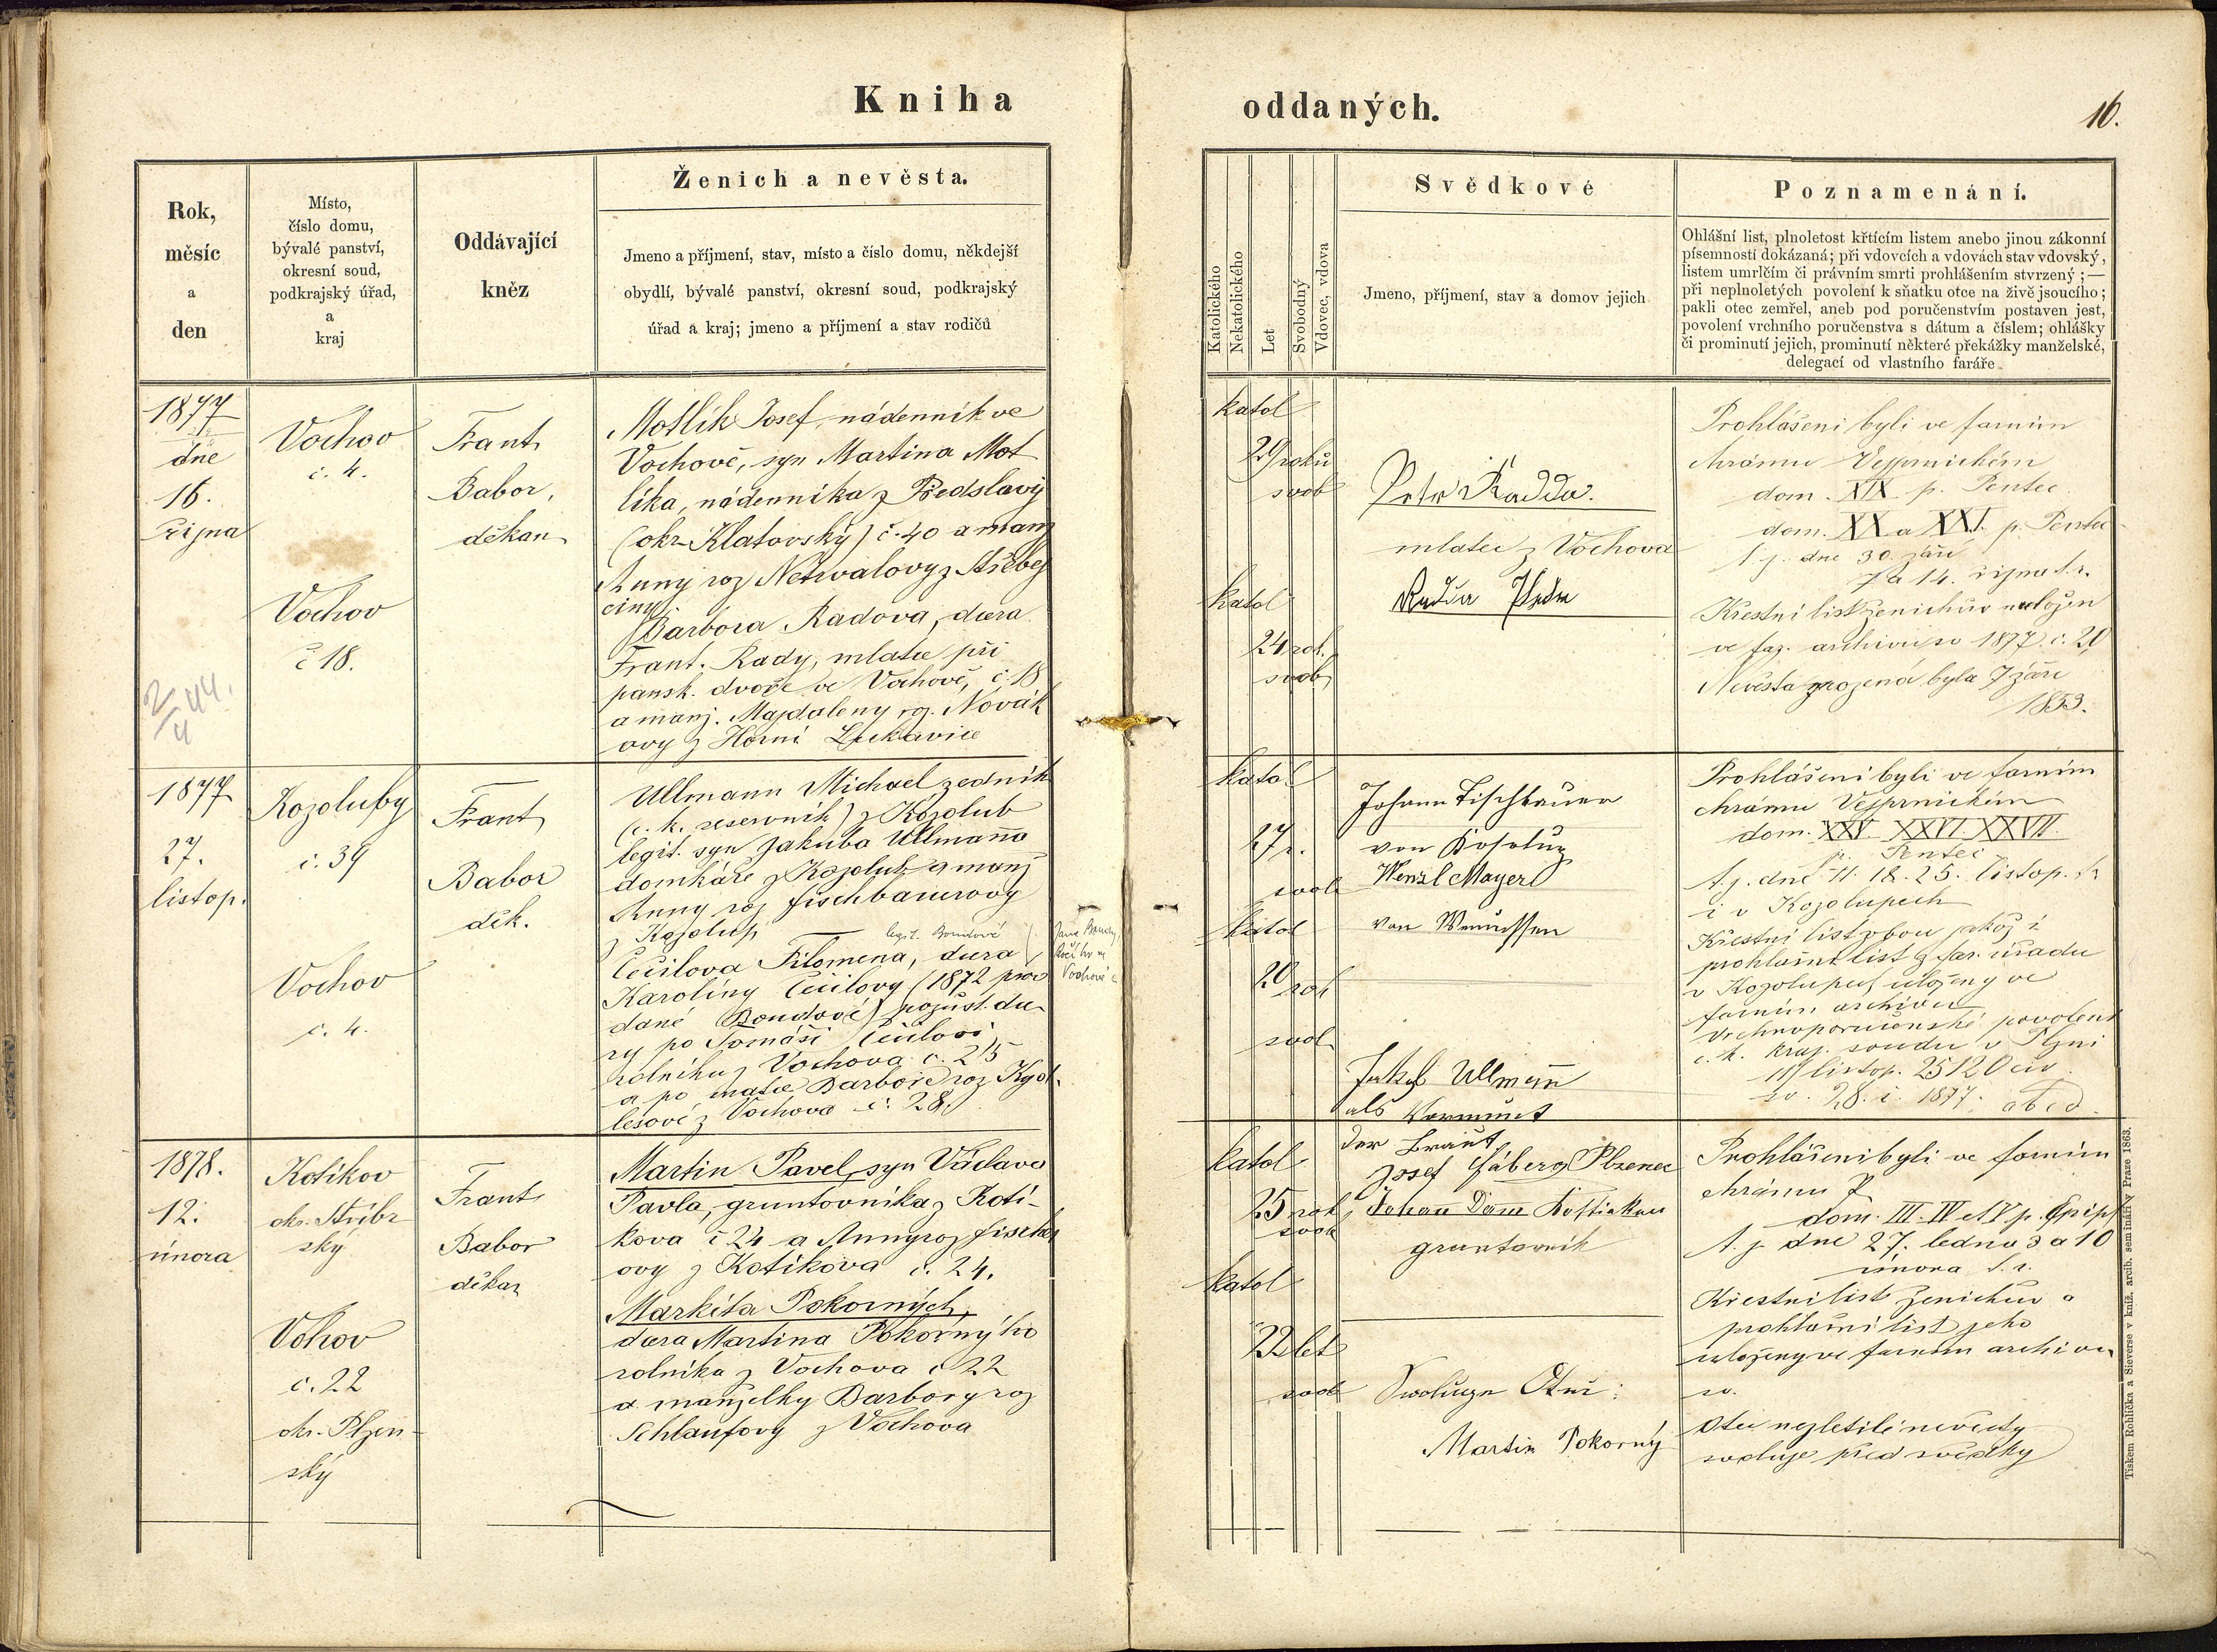 Kniha
oddaných.
16.
Rok,
měsíc
a
den
Místo,
číslo domu,
bývalé panství,
okresní soud,
podkrajský úřad,
a
kraj
Oddávající
kněz
Ženich a nevěsta.
Jmeno a příjmení, stav, místo a číslo domu, někdejší
obydlí, bývalé panství, okresní soud, podkrajský
úřad a kraj; jmeno a příjmení a stav rodičů
Katolického
Nekatolického
Let
Svobodný
Vdovec, vdova
Svědkové
Jmeno, příjmení, stav a domov jejich
Poznamenání.
Ohlášní list, plnoletost křtícím listem anebo jinou zákonní
písemností dokázaná; při vdovcích a vdovách stav vdovský,
listem umrlčím či právním smrti prohlášením stvrzený;—
při neplnoletých povolení k sňatku otce na živě jsoucího;
pakli otec zemřel, aneb pod poručenstvím postaven jest,
povolení vrchního poručenstva s dátum a číslem; ohlášky
či prominutí jejich, prominutí některé překážky manželské,
delegací od vlastního faráře.
1877
dne
16.
října
2/4 44.
Vochov
č. 4.
Vochov
č 18.
Frant
Babor,
děkan
Motlík Josef, nádenník ve
Vochově, syn Martina Mot
líka, nádenníka z Předslavi
(okr. Klatovský) č. 40 a manž
Anny roz Netrvalovy z Střebej
činy
Barbora Radova, dcera
Frant. Rady, mlatce při
pansk. dvoře ve Vochově, č. 18
a manž. Majdaleny roz. Novák
ovy z Horní Lukavice
katol
29 roků
svob
katol
24 rok.
svob
Petr Radda.
mlatec z Vochova
Prohlášeni byli ve farním
chrámu Vejprnickém
dom. XIX. p. Pentec
dom. XX a XXI. p. Pentec
t. j. dne 30. září
7 a 14. října t. r.
Křestní list ženichův uložen
ve far. archivu so 1877. č. 20
Nevěsta zrozená byla 7 září
1853.
1877
27.
listop.
Kozoluby
č. 39
Vochov
č. 4.
Frant
Babor
děk.
Ullmann Michael zedník
(c. k. reservník) z Kozolub
legit. syn Jakuba Ullmanna
domkáře z Kozolub a manž
Anny roz Fischbauerovy
z Kozolup
legit. Boudové
Čečilova Filomena, dcera
Karolíny Čečilovy (1872 prov
dané Boudové) pozůst. dce
ry po Tomáši Čečilovi
rolníku z Vochova č. 25
a po matce Barboře roz Kyd
lesové z Vochova č. 28.
Vochově
katol
27 r.
svob
katol
20 rok
svob
Johann Fischbauer
von Kosolup
Wenzl Mayerl
von
Jakob Ullmann
als Vormund
der Braut
Prohlášeni byli ve farním
chrámu Vejprnickém
dom. XXV. XXVI. XXVII.
p. Pentec
t. j. dne 11. 18. 25. listop. t. r
i v Kozolupech
Křestní list obou jakož i
prohlašní list z far. úřadu
v Kozolupech uloženy ve
farním archivu
Vrchnoporučenské povolení
c. k. kraj. soudu v Plzni
listop. 25120 civ
so. 28. i. 1877. abcd.
1878.
12.
února
Kotíkov
okr. Stříbr
ský
Vohov
č. 22
okr. Plzen-
ský
Frant
Babor
děkan
Martin Pavel, syn Václava
Pavla, gruntovníka z Kotí-
kova č 24 a Anny roz Fischer
ovy z Kotíkova č. 24.
Markéta Pokorných,
dcera Martina Pokorného
rolníka z Vochova č 22
a manželky Barbory roz
Schlaufovy z Vochova
katol
25 rok
svob
katol
22 let
svob
Josef Gáberg Plzenec
gruntovník
Martin Pokorný
Prohlášeni byli ve farním
chrámu
dom. III. IV et V p. Epiph
t. j. dne 27. ledna 3 a 10
února t. r.
Křestní list ženichův a
prohlašní list jeho
uloženy ve farním archivu
so.
Otec nezletilé nevěsty
svoluje před svědky
Tiskem Rohlíčka a Sieverse v kníž. arcib. semináři v Praze 1863.